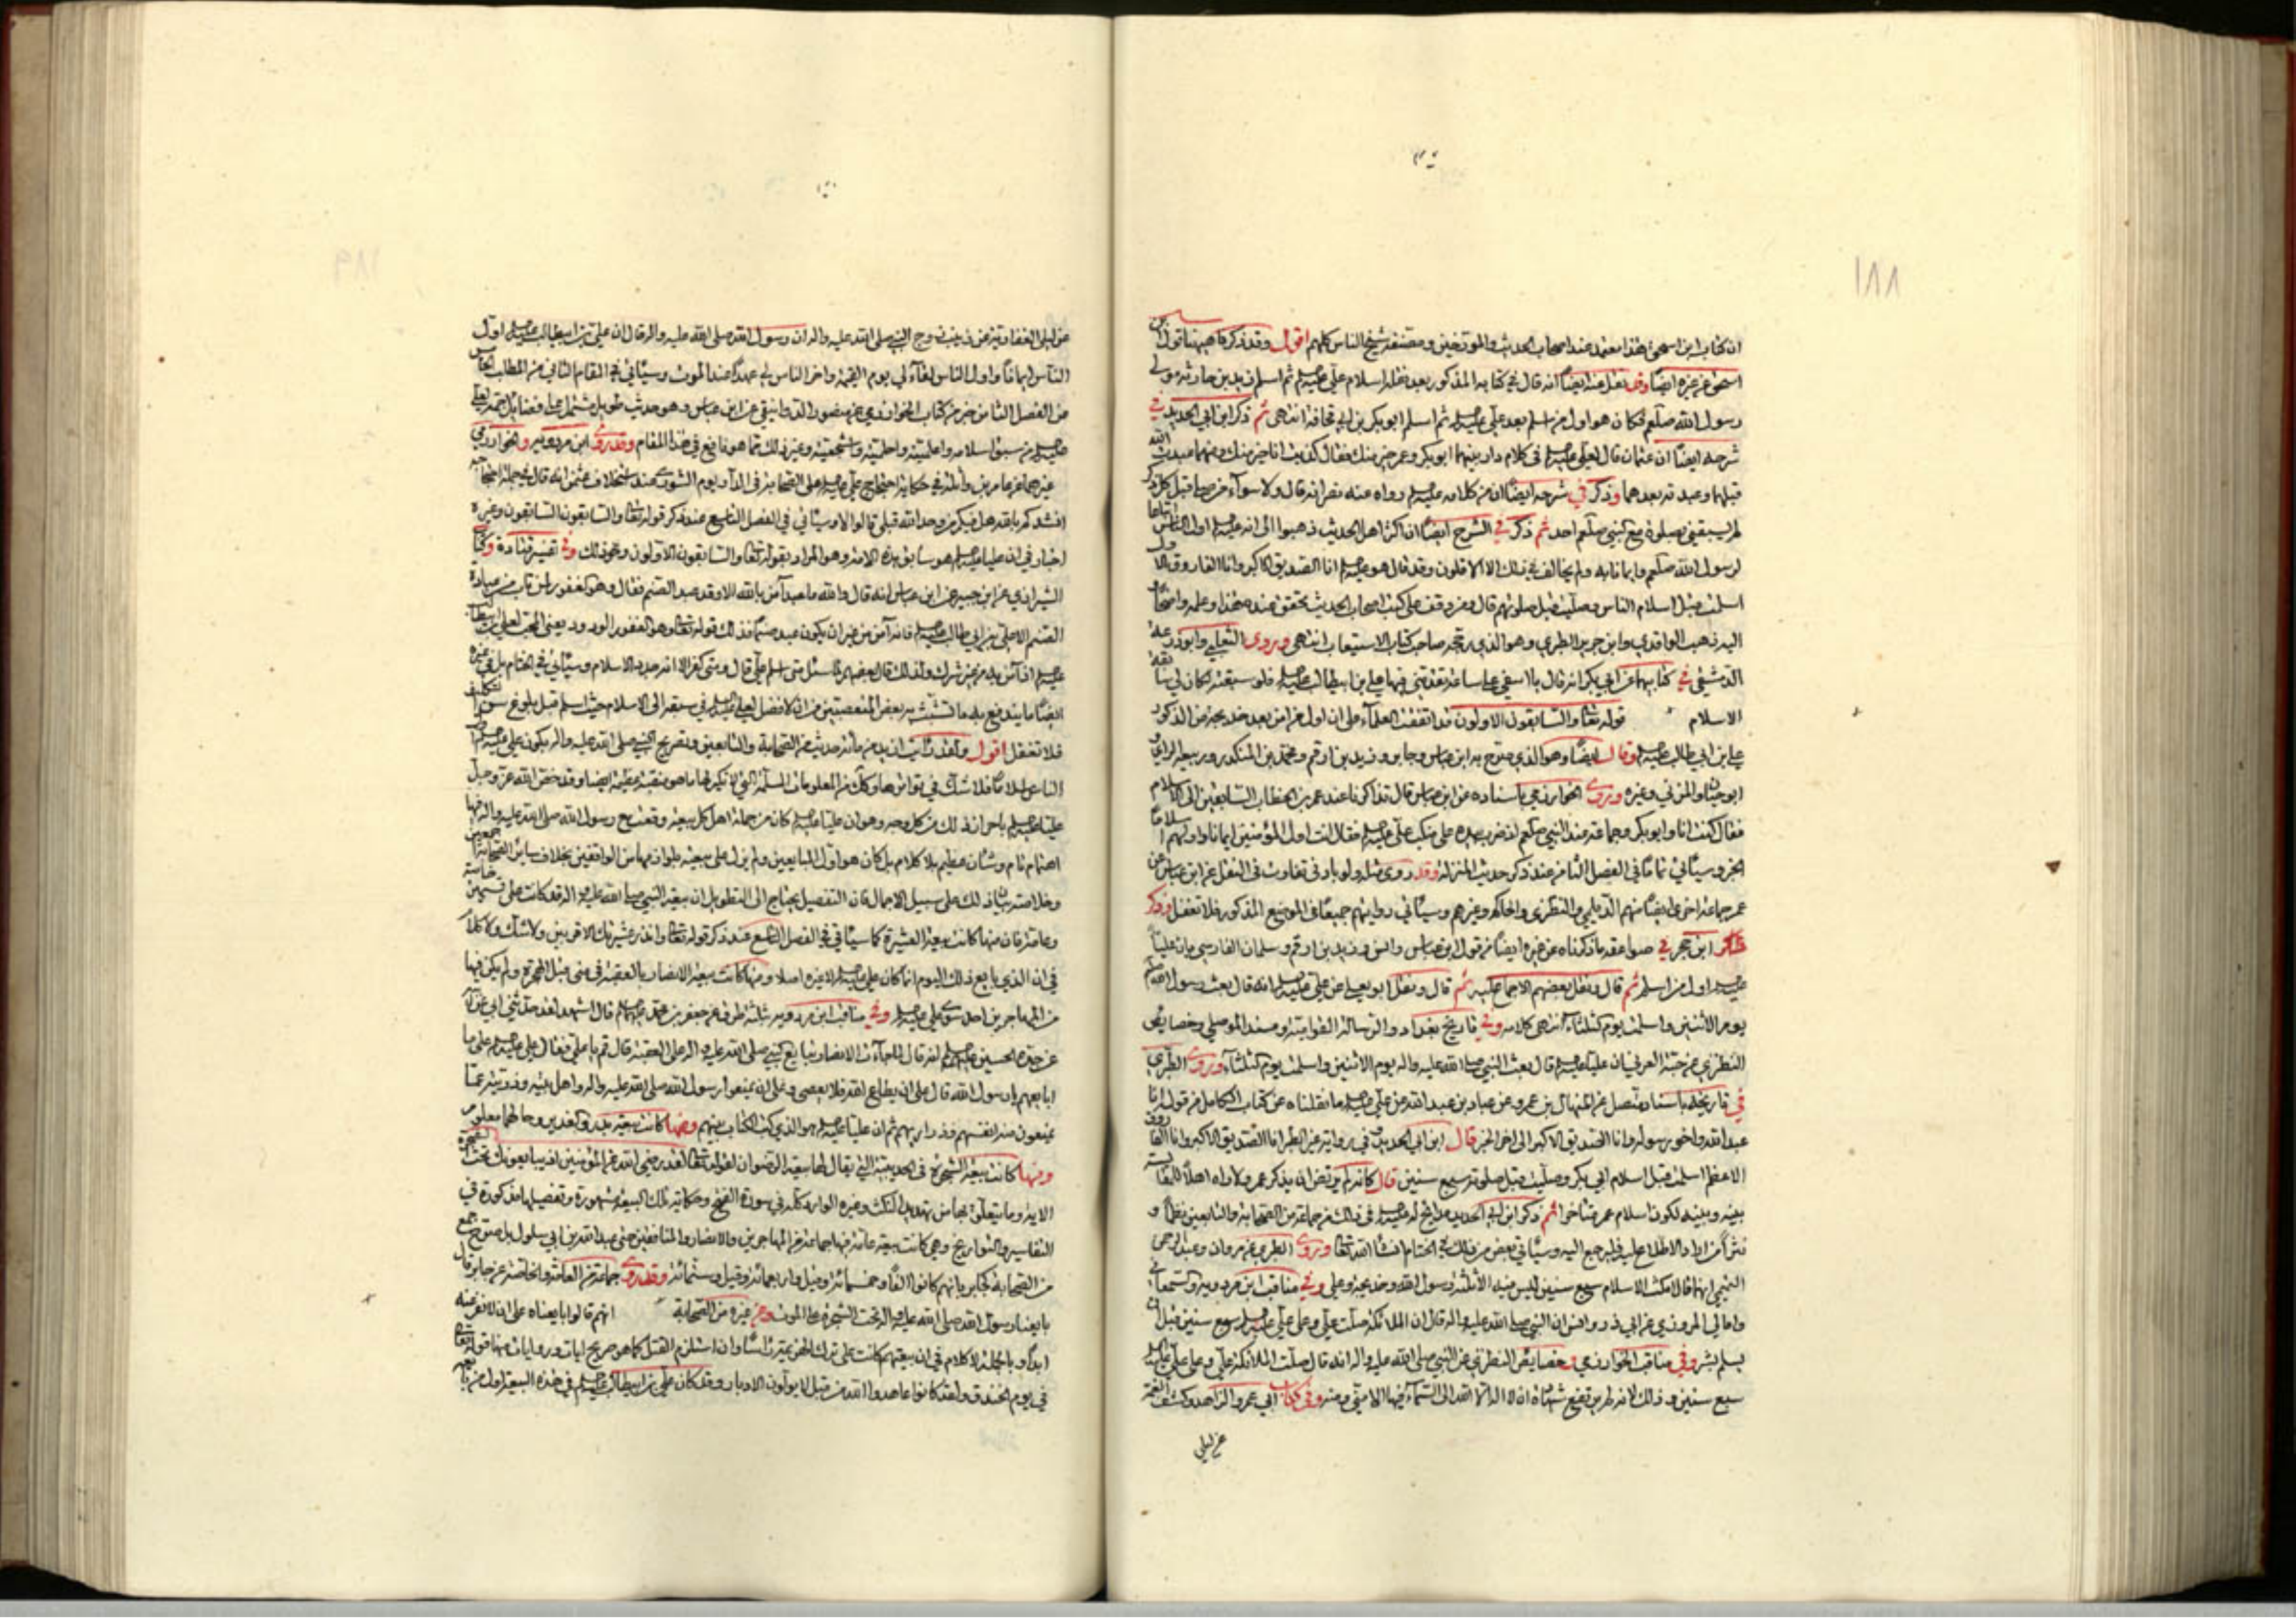 ١٨٨
ان كتاب ابن اسحق هذا معتمد عند اصحاب الحديث والمورخين ومصنفه شيخ الناس كلهم اقول وقد ذكر ما هيهنا قول ابن
اسحق غيره ايضا وقد نقل عنه ايضا انه قال في كتابه المذكور بعد نقله اسلام علي عليه السلم ثم اسلم زيد بن حارثه مولى
رسول الله صلعم فكان هو اول من اسلم بعد علي عليه السلم ثم اسلم ابو بكر بن ابي قحافة انتهى ثم ذكر ابن ابي الحديد في
شرحه ايضا ان عثمان قال لعلي عليه السلم في كلام دار بينهما ابو بكر وعمر خير منك فقال كذبت انا خير منك ومنهما عبدت الله
قبلهما وعبدته بعدهما وذكر في شرحه ايضا ان من كلامه عليه السلم رواه عنه نصر انه قال ولا سواء من صلى قبل كل ذكر
لم يسبقني بصلوة مع النبي صلعم احد ثم ذكر في الشرح ايضا ان اكثر اهل الحديث ذهبوا الى انه عليه السلم اول الناس اتباعا
لرسول الله صلعم وايمانا به ولم يخالف في ذلك الا الاقلون وقد قال هو عليه السلم انا الصديق الاكبر وانا الفاروق الاول
اسلمت قبل اسلام الناس وصليت قبل صلوتهم قال ومن وقف على كتب اصحاب الحديث تحقق عنده هذا وعلمه واضحا
اليه ذهب الواقدي وابن جرير الطبري وهو الذي رجحه صاحب كتاب الاستيعاب انتهى وروى الثعلبي وابو ذرعه
الدمشقي في كتابيهما عن ابي بكر انه قال يا اسفي على ساعة تقدمني فيها علي بن ابيطالب عليه السلم فلو سبقته لكان لي سابقة
الاسلام قوله تعالى والسابقون الاولون قد اتفقت العلماء على ان اول من امن بعد خديجه من الذكور
علي بن ابي طالب عليه السلم وقال ايضا وهو الذي صرح به ابن عباس وجابر وزيد بن ارقم ومحمد بن المنكدر وربيعه الراي و
ابو حيان والمزني وغيره وروى الخوارزمي باسناده عن ابن عباس قال تذاكرنا عند عمر بن الخطاب السابقين الى الاسلام
فقال كنت انا وابو بكر وجماعة عند النبي صلعم اذ ضرب بيده على منكب علي عليه السلم فقال انت اول المؤمنين ايمانا واولهم اسلاما
الخبر وسيأتي تماما في الفصل الثامن عند ذكر حديث المنزلة وقد روى مثله ولو بادنى تفاوت في النقل عن ابن عباس عن
عمر جماعة اخرى ايضا منهم الديلمي والنطنزي والحاكم وغيرهم وسيأتي روايتهم جميعا في الموضع المذكور فلا تغفل وذكر
ابن حجر في صواعقه ما ذكرناه عن غيره ايضا من قول ابن عباس وانس وزيد بن ارقم وسلمان الفارسي بان عليا
عليه السلم اول من اسلم ثم قال ونقل بعضهم الاجماع عليه ثم قال ونقل ابو يعلى عن علي عليه السلم انه قال بعث رسول الله صلعم
يوم الاثنين واسلمت يوم الثلثاء انتهى كلامه وفي تاريخ بغداد والرسالة القوامية ومسند الموصلي وخصايص
النطنزي عن حبة العرني ان عليا عليه السلم قال بعث النبي صلى الله عليه واله يوم الاثنين واسلمت يوم الثلثاء وروى الطبري
في تاريخه باسناد متصل عن المنهال بن عمرو عن عباد بن عبد الله عن علي عليه السلم ما نقلناه عن كتاب الكامل من قوله انا
عبد الله واخو رسوله وانا الصديق الاكبر الى اخر الخبر قال ابن ابي الحديد وفي رواية غير الطبري انا الصديق الاكبر وانا الفاروق
الاعظم اسلمت قبل اسلام ابي بكر وصليت قبل صلوته سبع سنين قال كانه لم يرتض ان يذكر عمر ولا راه اهلا للمقايسة
بينه وبينه لكون اسلام عمر متاخرا ثم ذكر ابن ابي الحديد مدايح له عليه السلم في ذلك من جماعة من الصحابة والتابعين نظما و
نثرا من اراد الاطلاع عليه فليرجع اليه وسيأتي بعض من ذلك في الختام انشا الله تعالى وروى الطبري عن مروان وعبد الرحمن
التيمي انهما قالا مكث الاسلام سبع سنين ليس فيه الا ثلثة رسول الله وخديجة وعلي وفي مناقب ابن مردويه والسمعاني
وامالي المروزي عن ابي ذر وانس ان النبي صلى الله عليه واله قال ان الملائكة صلت علي وعلى علي عليه السلم سبع سنين قبل ان
يسلم بشر وفي مناقب الخوارزمي وخصايص النطنزي عن النبي صلى الله عليه واله انه قال صلت الملائكة علي وعلى علي عليه السلم
سبع سنين وذلك لانه لم ترتفع شهادة ان لا اله الا الله الى السماء فيها الا مني ومنه وفي كتاب ابي عمرو الزاهد وكشف الغمة
عن ليلى
١٨٩
عن ليلى الغفارية عن زينب زوج النبي صلى الله عليه واله ان رسول الله صلى الله عليه واله قال ان علي بن ابيطالب عليه السلم اول
الناس ايمانا واول الناس لقاء لي يوم القيمة واخر الناس لي عهدا عند الموت وسيأتي في المقام الثاني من المطلب الخامس
من الفصل الثامن خبر من كتاب الخوارزمي عن منصور الدوانيقي عن ابن عباس وهو حديث طويل مشتمل على فضايل جمة لعلي
عليه السلم من سبق اسلامه واعلميته واحلميته واشجعيته وغير ذلك مما هو نافع في هذا المقام وقد روى ابن مردويه والخوارزمي
غيرهما عن عامر بن واثلة في حكاية احتجاج علي عليه السلم على الصحابة في الدار يوم الشورى عند استخلاف عثمن انه قال في جملة احتجاجه
انشدكم بالله هل فيكم من وحد الله قبلي قالوا لا وسيأتي في الفصل التاسع عند ذكر قوله تعالى والسابقون السابقون وغيره
اخبار في ان عليا عليه السلم هو سابق هذه الامة وهو المراد بقوله تعالى والسابقون الاولون ونحو ذلك وفي تفسير قتادة وكتاب
الشيرازي عن ابن جبير عن ابن عباس انه قال والله ما عبد امن بالله الا وقد عبد الصنم فقال وهو الغفور لمن تاب من عبادة
الصنم الا علي بن ابي طالب عليه السلم فانه آمن من غير ان يكون عبد صنما فذلك قوله تعالى وهو الغفور الودود يعني المحب لعلي بن ابيطالب
عليه السلم اذ آمن به من غير شرك ولذلك قال بعضهم لما سئل متى اسلم علي قال ومتى كفر الا انه جدد الاسلام وسيأتي في الختام بل في غيره
ايضا ما يندفع به ما تشبث به بعض المتعصبين من ان لا فضل لعلي عليه السلم في سبقه الى الاسلام حيث اسلم قبل بلوغ سن التكليف
فلا تغفل اقول ولقد رايت ازيد من مائة حديث من الصحابة والتابعين وتصريح النبي صلى الله عليه واله بكون علي عليه السلم اول
الناس اسلاما فلا شك في تواترها وكل من المعلومات المسلمة التي لا نكير لها ما هو منقبة عظيمة ايضا وقد خص الله عز وجل
عليا عليه السلم باحراز ذلك من كل وجه وهو ان عليا عليه السلم كان من جملة اهل كل بيعة وقعت مع رسول الله صلى الله عليه واله فيها
اهتمام تام وشان عظيم بلا كلام بل كان هو اول المبايعين ولم يزل على بيعته بلوازمها من الواقفين بخلاف ساير الصحابة اجمعين
وخلاصة بيان ذلك على سبيل الاجمال فان التفصيل يحتاج الى التطويل ان بيعة النبي صلى الله عليه واله قد كانت على قسمين خاصة
وعامة فان منها كانت بيعة العشيرة كما سيأتي في الفصل التاسع عند ذكر قوله تعالى وانذر عشيرتك الاقربين ولا شك ولا كلام
في ان الذي بايع ذلك اليوم انما كان علي عليه السلم لا غيره اصلا ومنها كانت بيعة الانصار بالعقبة في منى قبل الهجرة ولم يكن فيها
من المهاجرين احد سوى علي عليه السلم وفي مناقب ابن مردويه ثلثة طرق عن جعفر بن محمد عليهما السلم قال اشهد لقد حدثني ابي عن ابيه
عن جده الحسين عليه السلم انه قال لما جاءت الانصار تبايع النبي صلى الله عليه واله على العقبة قال قم يا علي فقال علي عليه السلم على ما
ابايعهم يا رسول الله قال على ان يطاع الله فلا يعصى وعلى ان يمنعوا رسول الله صلى الله عليه واله واهل بيته وذريته عما
يمنعون منه انفسهم وذراريهم ثم ان عليا عليه السلم هو الذي كتب الكتاب بينهم ومنها كانت بيعة بدر والغدير وحالهما معلوم
ومنها كانت بيعة الشجرة في الحديبية التي يقال لها بيعة الرضوان لقوله تعالى لقد رضي الله عن المؤمنين اذ يبايعونك تحت الشجرة
الاية وما يتعلق بها من تهديد النكث وغيره الوارد كله في سورة الفتح وحكاية تلك البيعة مشهورة وتفصيلها مذكورة في
التفاسير والتواريخ وهي كانت بيعة عامة فيها جماعة من المهاجرين والانصار والمنافقين حتى عبد الله بن ابي سلول بل صرح جمع
من الصحابة كجابر بانهم كانوا الفا وخمسمائة وقيل واربعمائة وقيل وستمائة وقد روى جماعة من العامة والخاصة عن جابر قال
بايعنا رسول الله صلى الله عليه واله تحت الشجرة على الموت وعن غيره من الصحابة انهم قالوا بايعناه على ان لا نفر عنه
ابدا وبالجملة لا كلام في ان بيعتهم كانت على ترك الهزيمة راسا وان استلزم القتل كما هو صريح ايات وروايات منها قوله تعالى
في يوم الخندق ولقد كانوا عاهدوا الله من قبل لا يولون الادبار وقد كان علي بن ابيطالب عليه السلم في هذه البيعة اول من بايع